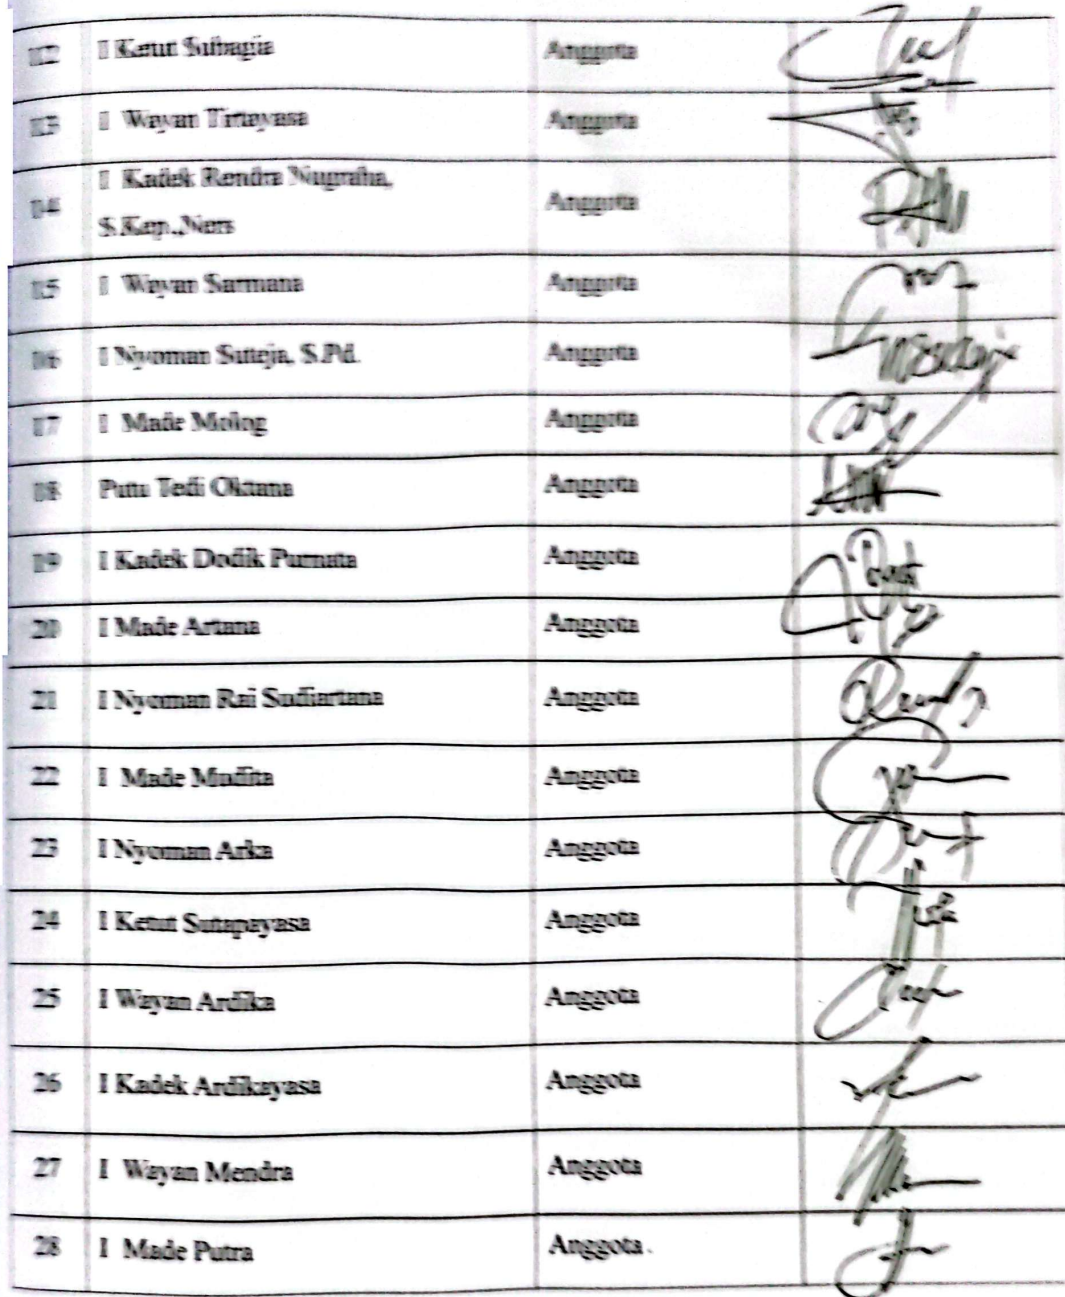 12 I Ketut Subagia Anggota
13 I Wayan Tirtayasa Anggota
14 I Kadek Rendra Nugraha, Anggota
S.Kep.,Ners
15 I Wayan Sarmana Anggota
16 I Nyoman Suteja, S.Pd. Anggota
17 I Made Molog Anggota
18 Putu Tedi Oktana Anggota
19 I Kadek Dodik Purnata Anggota
20 I Made Artana Anggota
21 I Nyoman Rai Sudiartana Anggota
22 I Made Mudita Anggota
23 I Nyoman Arka Anggota
24 I Ketut Sutapayasa Anggota
25 I Wayan Ardika Anggota
26 I Kadek Ardikayasa Anggota
27 I Wayan Mendra Anggota
28 I Made Putra Anggota.